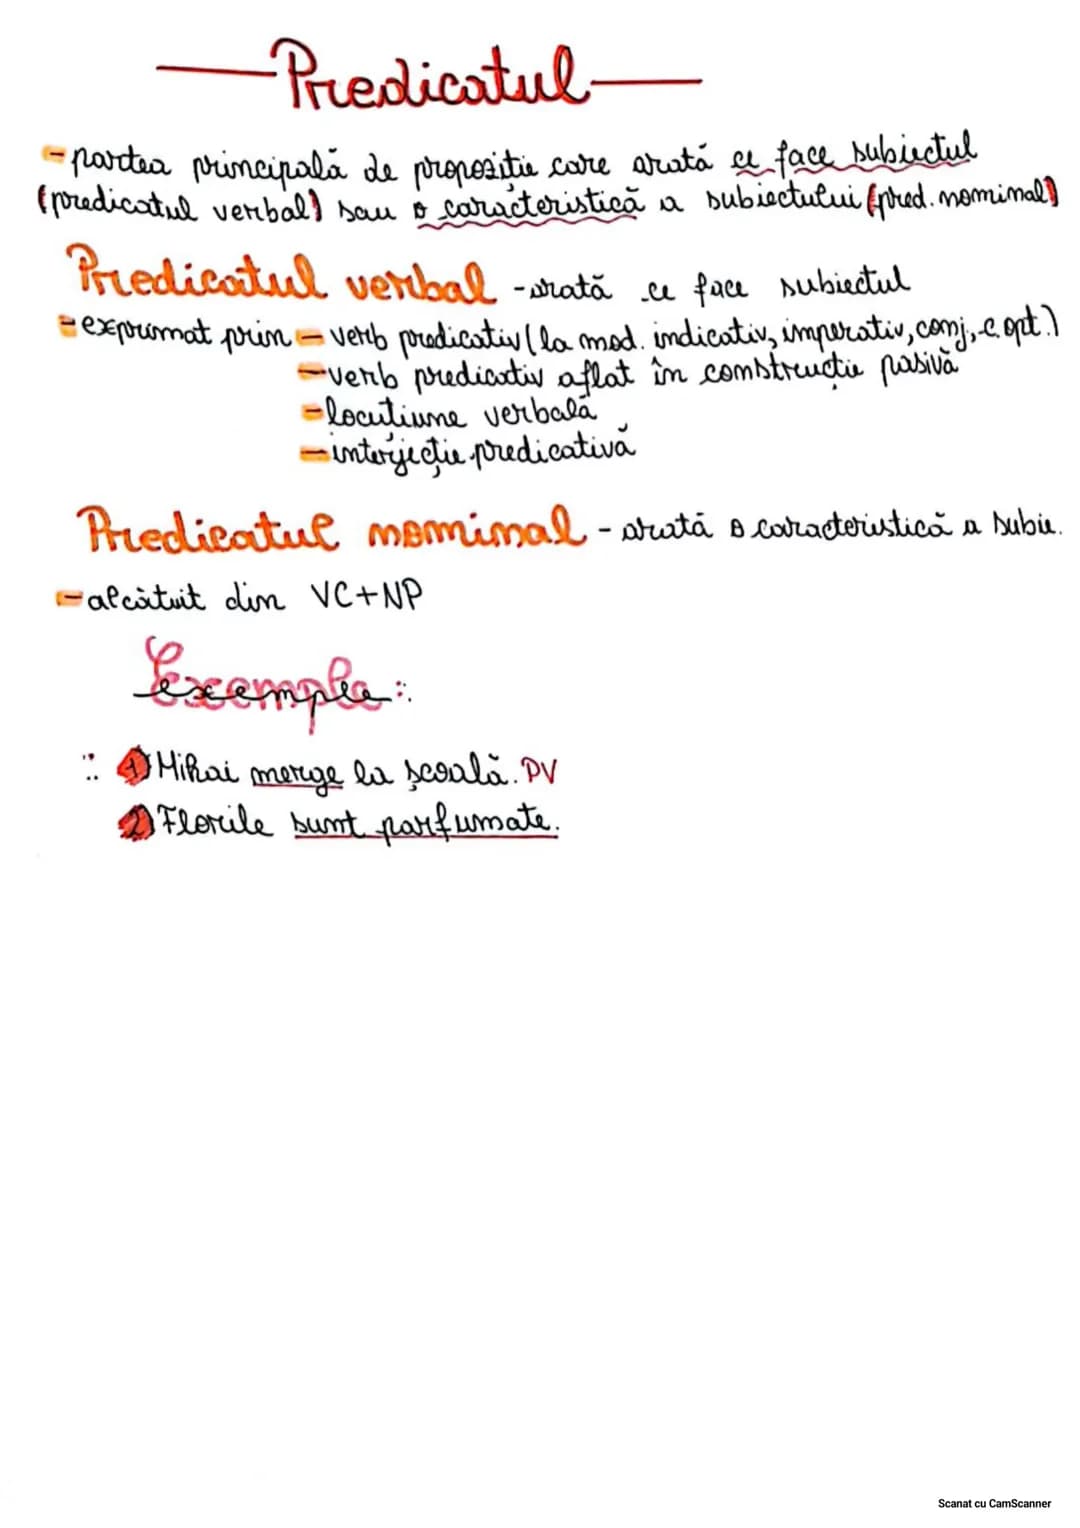 Predicatul
- partea principală de propoziție care arată ce face subiectul
(predicatul verbal) sau o caracteristică a subiectului (pred. nominal)
Predicatul verbal - arată ce face subiectul
- exprimat prin - verb predicativ (la mod. indicativ, imperativ, conj, c. opt.)
- verb predicativ aflat în construcție pasivă
- locuțiune verbală
- interjecție predicativă
Predicatul nominal - arată o caracteristică a subie.
- alcătuit din VC+NP
Exemple:
1) Mihai merge la școală. PV
2) Florile sunt parfumate.
Scanat cu CamScanner